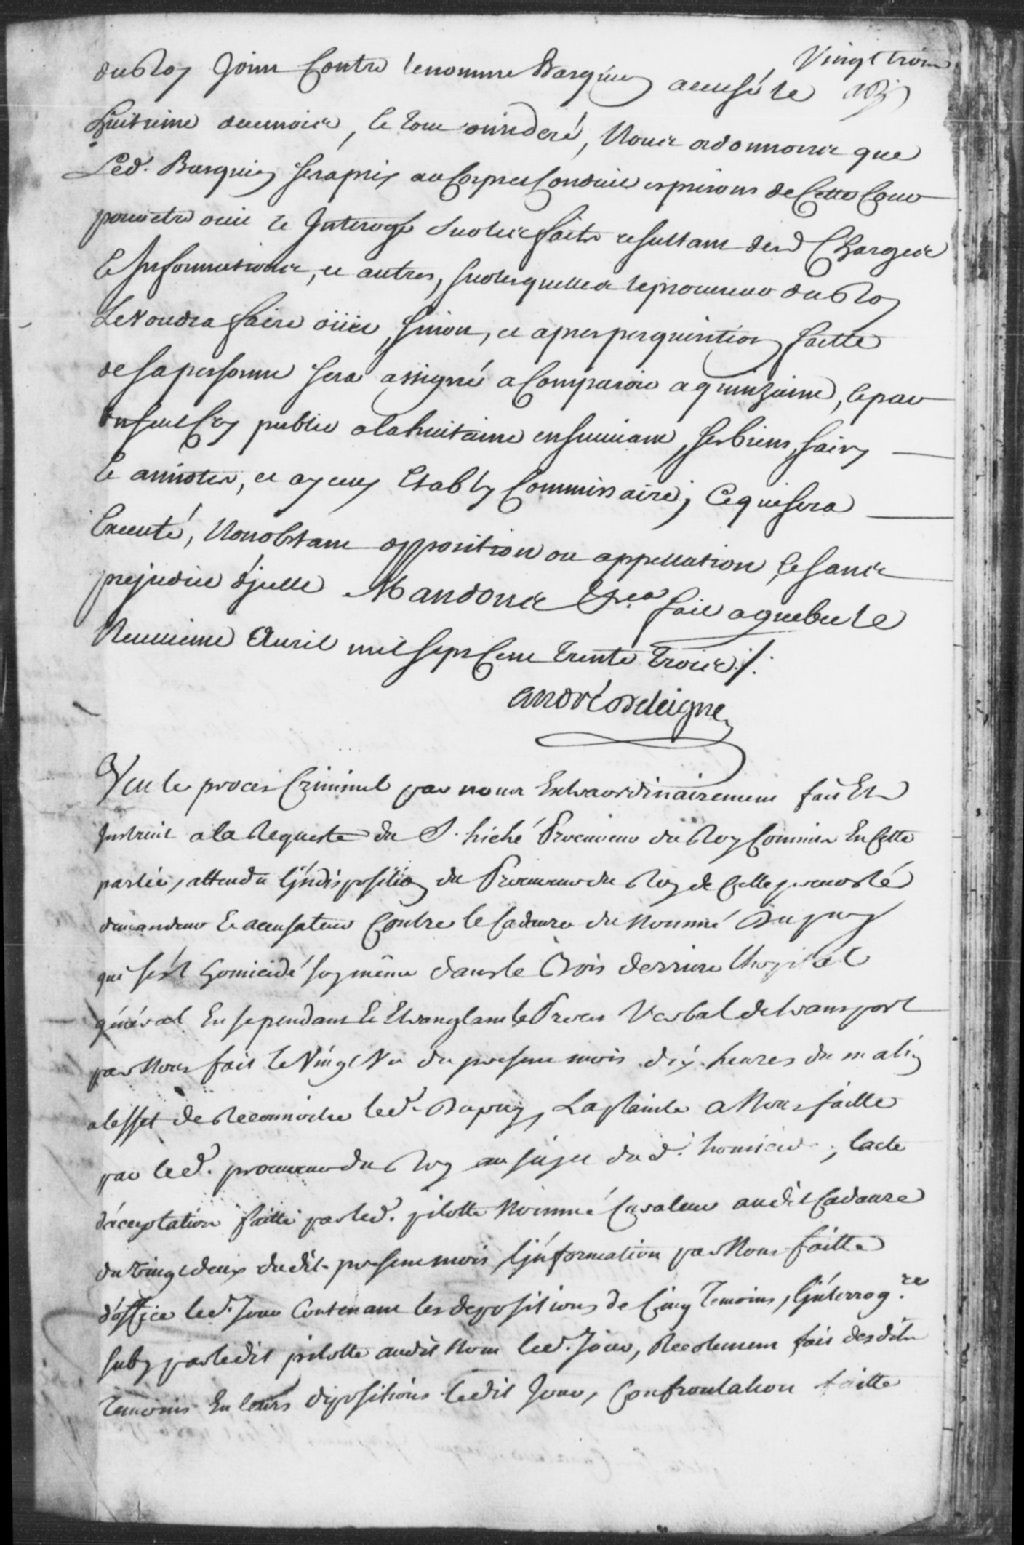 Vingt trois
du Roy joint Contre le nommé Barquin accusé le
huitieme du mois, le tout consideré, Nous ordonnons que
Led. Barquin sera pris au Corps et Conduit es prisons de Cette Cour
pour etre ouii et Interogé sur les faits resultans desd. Charges
et Informations, et autres, sur lesquelles le procureur du Roy
Le voudra faire oüir, sinon, et apres perquisition faitte
de sa personne sera assigné a Comparoir a quinzaine, et par
un seul Cry public a la huitaine ensuivant, ses biens saisys
et annotés, et a yceux Etably Commissaire, Ce qui sera
Executé, Nonobstant opposition ou appellation et sans
prejudice d'jcelle Mandons &ca fait a quebec le
Neuvieme Avril mil sept Cent trente trois ./.
André Deleigne
Veu le procès Criminel par nous Extraordinairement fait Et
Instruit a la Requeste du S. hiché Procureur du Roy Commis En Cette
partie, attendu L'jndisposition du Procureur du Roy de Cette prevosté
demandeur Et accusateur Contre le Cadavre du Nommé Dupuy
qui s'est homicidé soy même dans le Bois derriere L'hopital
général En se pendant Et Etranglant le Procès Verbal de transport
par Nous fait le Vingt Un du present mois dix heures du matin
a l'effet de Reconnoitre led. Dupuy, La plainte a Nous faitte
par led. procureur du Roy au sujet dud. homicide, lacte
d'acceptation faitte par led. pilotte Nommé Curateur audit Cadavre
du vingt deux dudit present mois, L'jnformation par Nous faitte
d'office led. Jour Contenant les depositions de Cinq Temoins, L'jnterrog.re
suby par ledit pilotte audit Nom led. Jour, Recolement fait desdits
Temoins En leurs depositions ledit Jour, Confrontation faitte